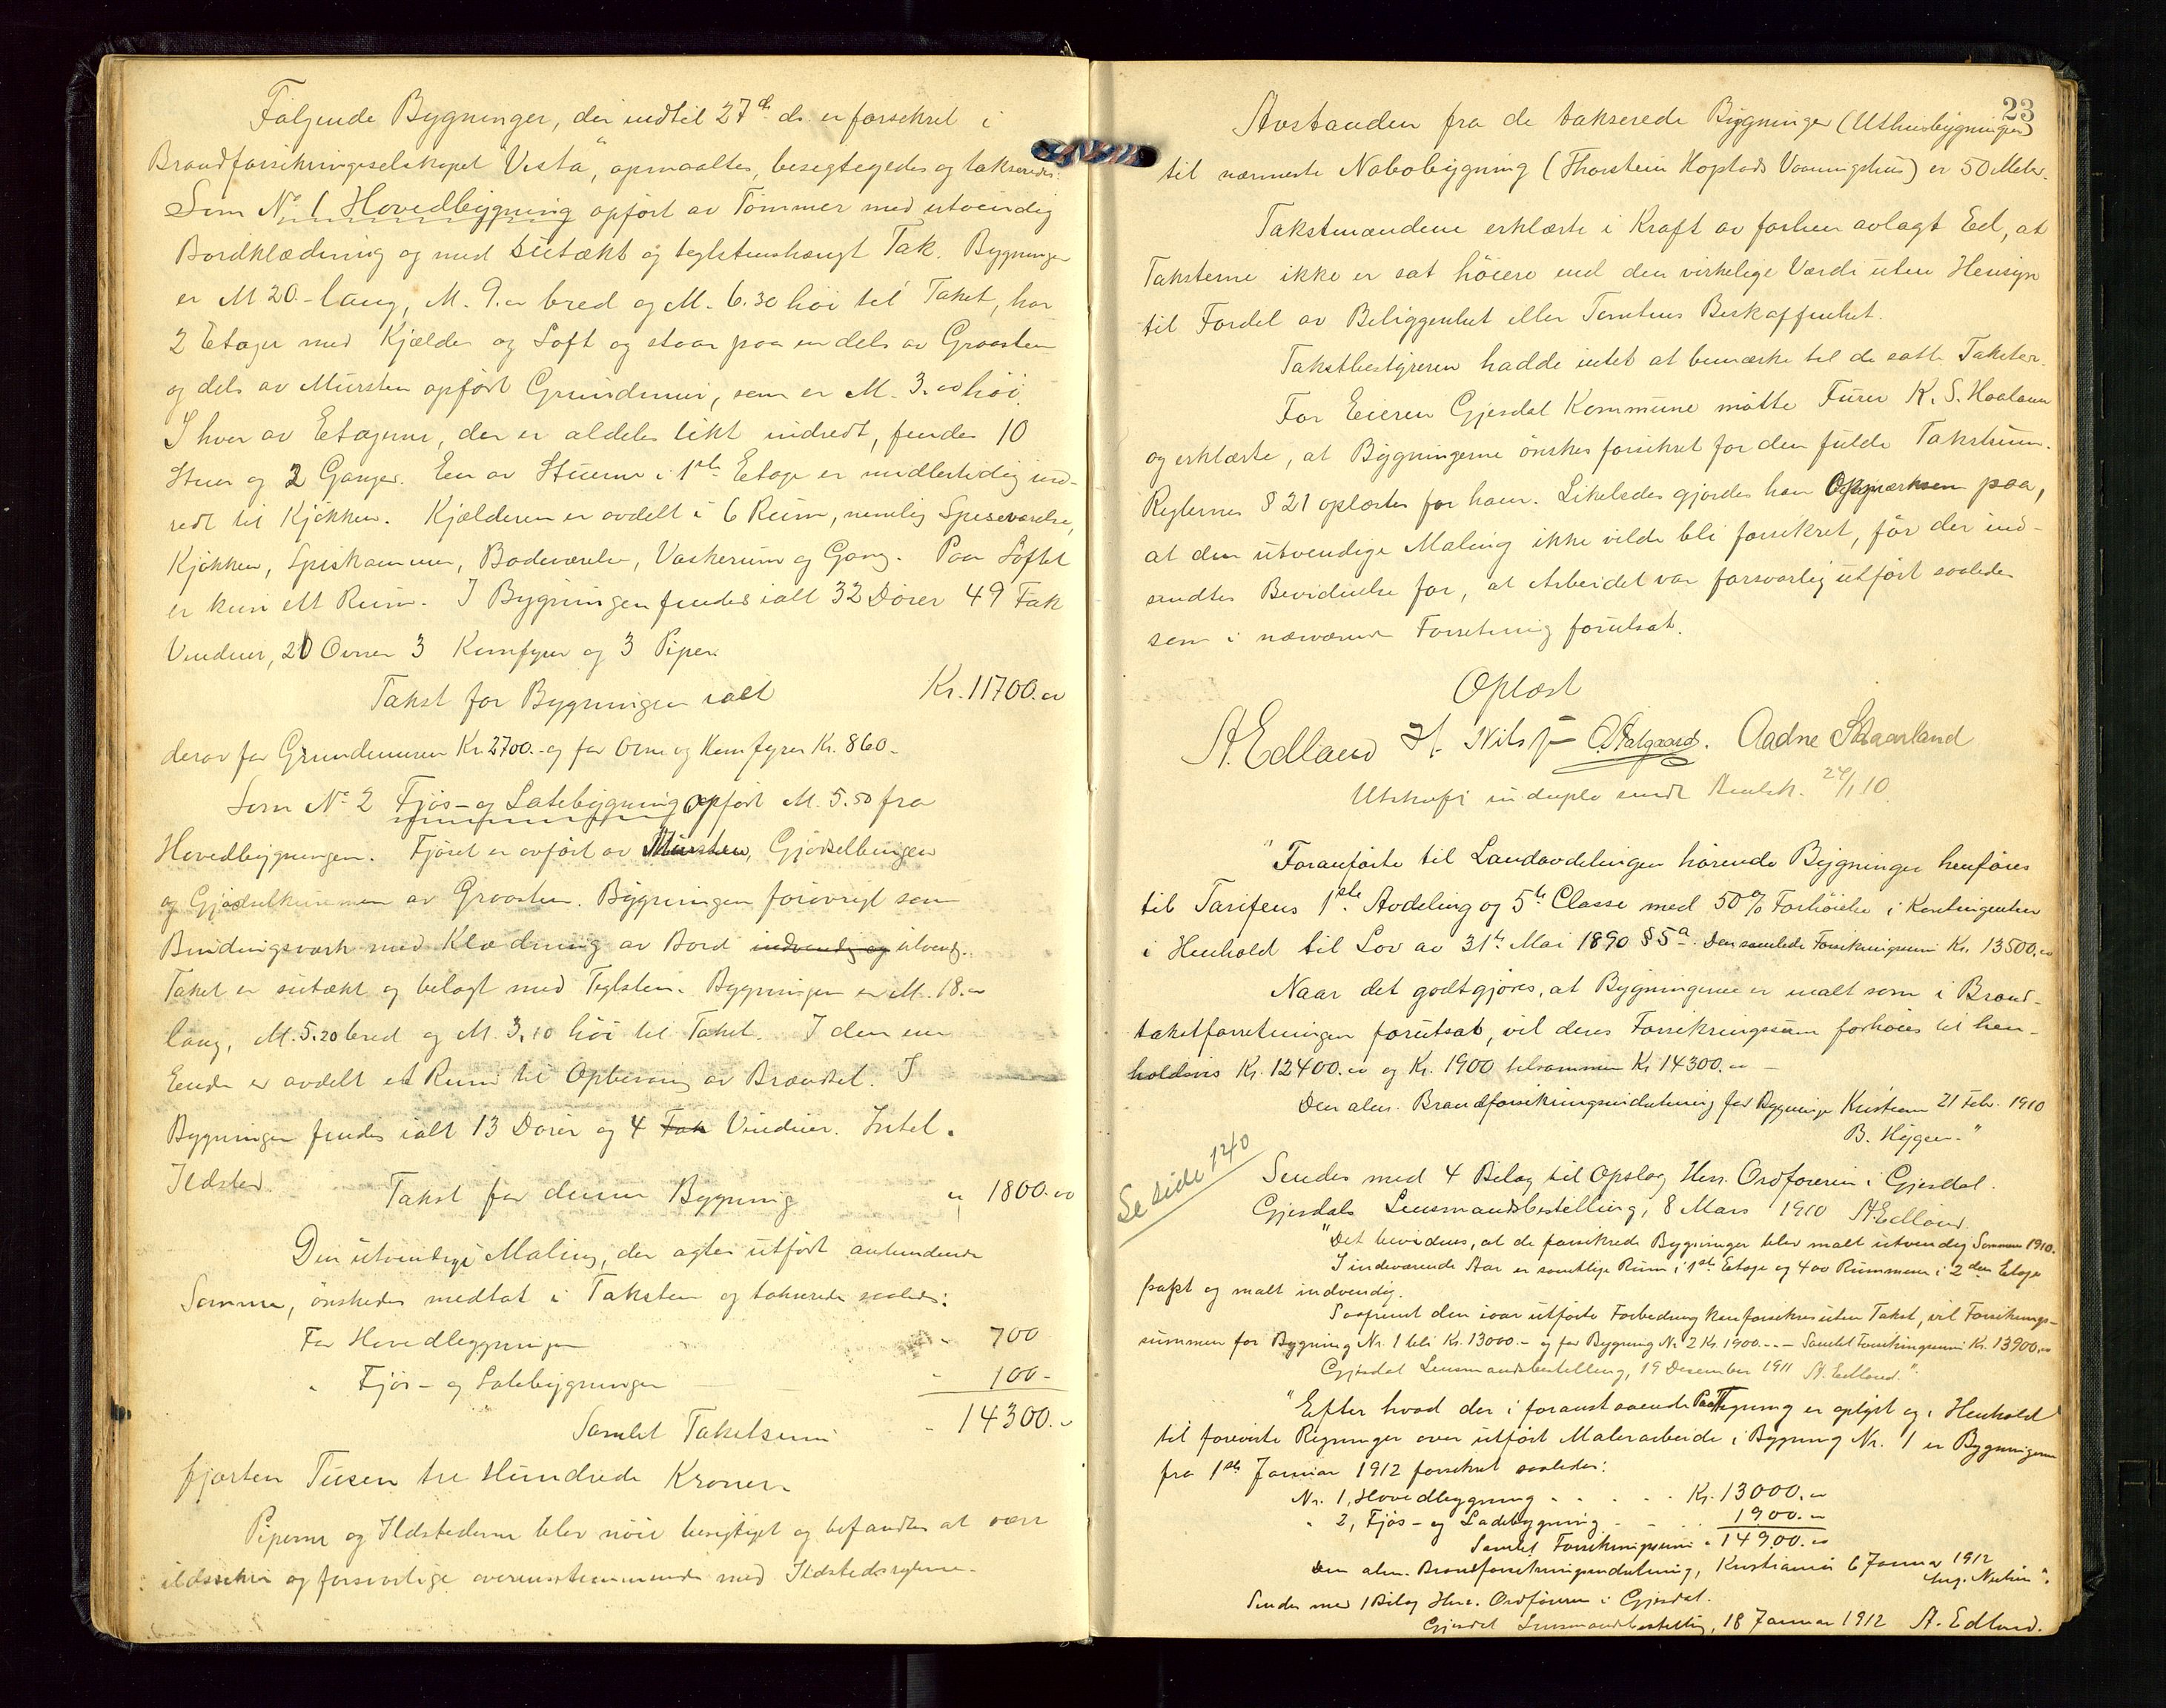 Følgende Bygninger, der indtil 27de ds. er forsikret i
Brandforsikringsselskapet "Vesta", opmaaltes, besigtegedes og takseredes:
Som No 1 Hovedbygning opført av Tømmer med utvendig
Bordklædning og med sutækt og teglstenshængt Tak. Bygningen
er M 20.- lang, M. 9.00 bred og M. 6.30 høi til Taket, har
2 Etager med Kjelder og Loft og staar paa en dels av Graasten
og dels av Mursten opført Grundmur, som er M. 3.00 høi.
I hver av Etagerne, der er aldeles likt indredt, findes 10
Stuer og 2 Ganger. Een av Stuerne i 1ste Etage er midlertidig ind-
redt til Kjøkken. Kjælderen er avdelt i 6 Rum, nemlig Spiseværelse,
Kjøkken, Spiskammer, Badeværelse, Vaskerum og Gang. Paa Loftet
er kun ett Rum. I Bygningen findes ialt 32 Dører 49 Fak
Vinduer, 20 Ovner 3 Komfyrer og 3 Piper.
Takst for Bygningen ialt Kr. 11700.00
derav for Grundmuren Kr. 2700.- og for Ovne og Komfyrer Kr. 860.-
Som No 2 Fjøs- og Ladebygning opført M. 5.50 fra
Hovedbygningen. Fjøset er opført av Mursten, Gjødselbingen
og Gjødselkummen av Graasten. Bygningen forøvrigt som
Bindingsverk med Klædning av Bord indvendig og utvendig.
Taket er sutækt og belagt med Teglsten. Bygningen er M. 18.00
lang, M. 5.20 bred og M. 3.10 høi til Taket. I den ene
Ende er avdelt et Rum til Opbevaring av Brændsel. I
Bygningen findes ialt 13 Dører og 4 Fak Vinduer. Intet
Ildsted.
Takst for denne Bygning " 1800.00
Den utvendige Maling, der agtes utført antændende
Sommer, ønskedes medtat i Taksten og takserdes saaledes:
For Hovedbygningen " 700
" Fjøs- og Ladebygningen " 100-
Samlet Takstsum " 14300.-
fjorten Tusen tre Hundrede Kroner.
Piperne og Ildstederne blev nøie besigtiget og befandtes at være
ildssikre og forsvarlige overensstemmende med Ildstedsreglerne.
23
Avstanden fra de takserede Bygninger (Uthusbygningen)
til nærmeste Nabobygning (Thorstein Hoplads Vaaningshus) er 50 Meter.
Takstmændene erklærte i Kraft av forhen avlagt Eed, at
Taksterne ikke er sat høiere end den virkelige Værdi uten Hensyn
til Fordel av Beliggenhet eller Tomtens Beskaffenhet.
Takstbestyreren hadde intet at bemærke til de satte Takster.
For Eieren Gjesdal Kommune møtte Furer K. S. Haaland
og erklærte, at Bygningerne ønskes forsikret for den fulde Takstsum.
Reglernes § 21 oplæstes for ham. Likeledes gjordes han Opmerksom paa,
at den utvendige Maling ikke vilde bli forsikret, før der ind-
sendtes Bevidnelse for, at Arbeidet var forsvarlig utført saaledes
som i nærværende Forretning forutsat.
Oplæst
A. Edland O. Aalgaard. Aadne Skaarland
Utskrift in duplo sendt 24/1 10.
"Foranførte til Landavdelingen hørende Bygninger henføres
til Tarifens 1ste Avdeling og 5te Classe med 50% Forhøielse i Kontingenten
i Henhold til Lov av 31te Mai 1890 § 5a. Den samlede Forsikringssum Kr. 13500.00
Naar det godtgjøres, at Bygningerne er malt som i Brand-
takstforretningen forutsat, vil deres Forsikringssum forhøies til hen-
holdsvis Kr. 12400.00 og Kr. 1900 tilsammen Kr. 14300.00 -
Den alm. Brandforsikringsindretning for Bygninger Kristiania 21 Febr. 1910
B. Hygen."
Se side 140
Sendes med 4 Bilag til Opslag Herr Ordføreren i Gjesdal.
Gjesdals Lensmandsbestilling, 8 Mars 1910 A. Edland.
"Det bevidnes, at de forsikrede Bygninger blev malt utvendig Sommeren 1910.
I indeværende Aar er samtlige Rum i 1ste Etage og 4 av Rummene i 2den Etage
papt og malt indvendig.
Saafremt den ivaar utførte Forbedring kan forsikres uten Takst, vil Forsikrings-
summen for Bygning Nr. 1 bli Kr. 13000.- og for Bygning Nr 2 Kr. 1900.- - Samlet Forsikringssum Kr. 13900.00
Gjesdal Lensmandsbestilling, 19 Desember 1911 A. Edland."
"Efter hvad der i foranstaaende Paategning er oplyst og i Henhold
til foreviste Regninger over utført Malerarbeide i Bygning Nr. 1 er Bygningerne
fra 1ste Januar 1912 forsikret saaledes:
Nr. 1, Hovedbygning - - - - Kr. 13000.00
" 2, Fjøs- og Ladebygning - - - 1900.00
Samlet Forsikringssum " 14900.00
Den alm. Brandforsikringsindretning, Kristiania 6 Januar 1912
Sendes med 1 Bilag Herr Ordføreren i Gjesdal.
Gjesdal Lensmandsbestilling, 18 Januar 1912 A. Edland.